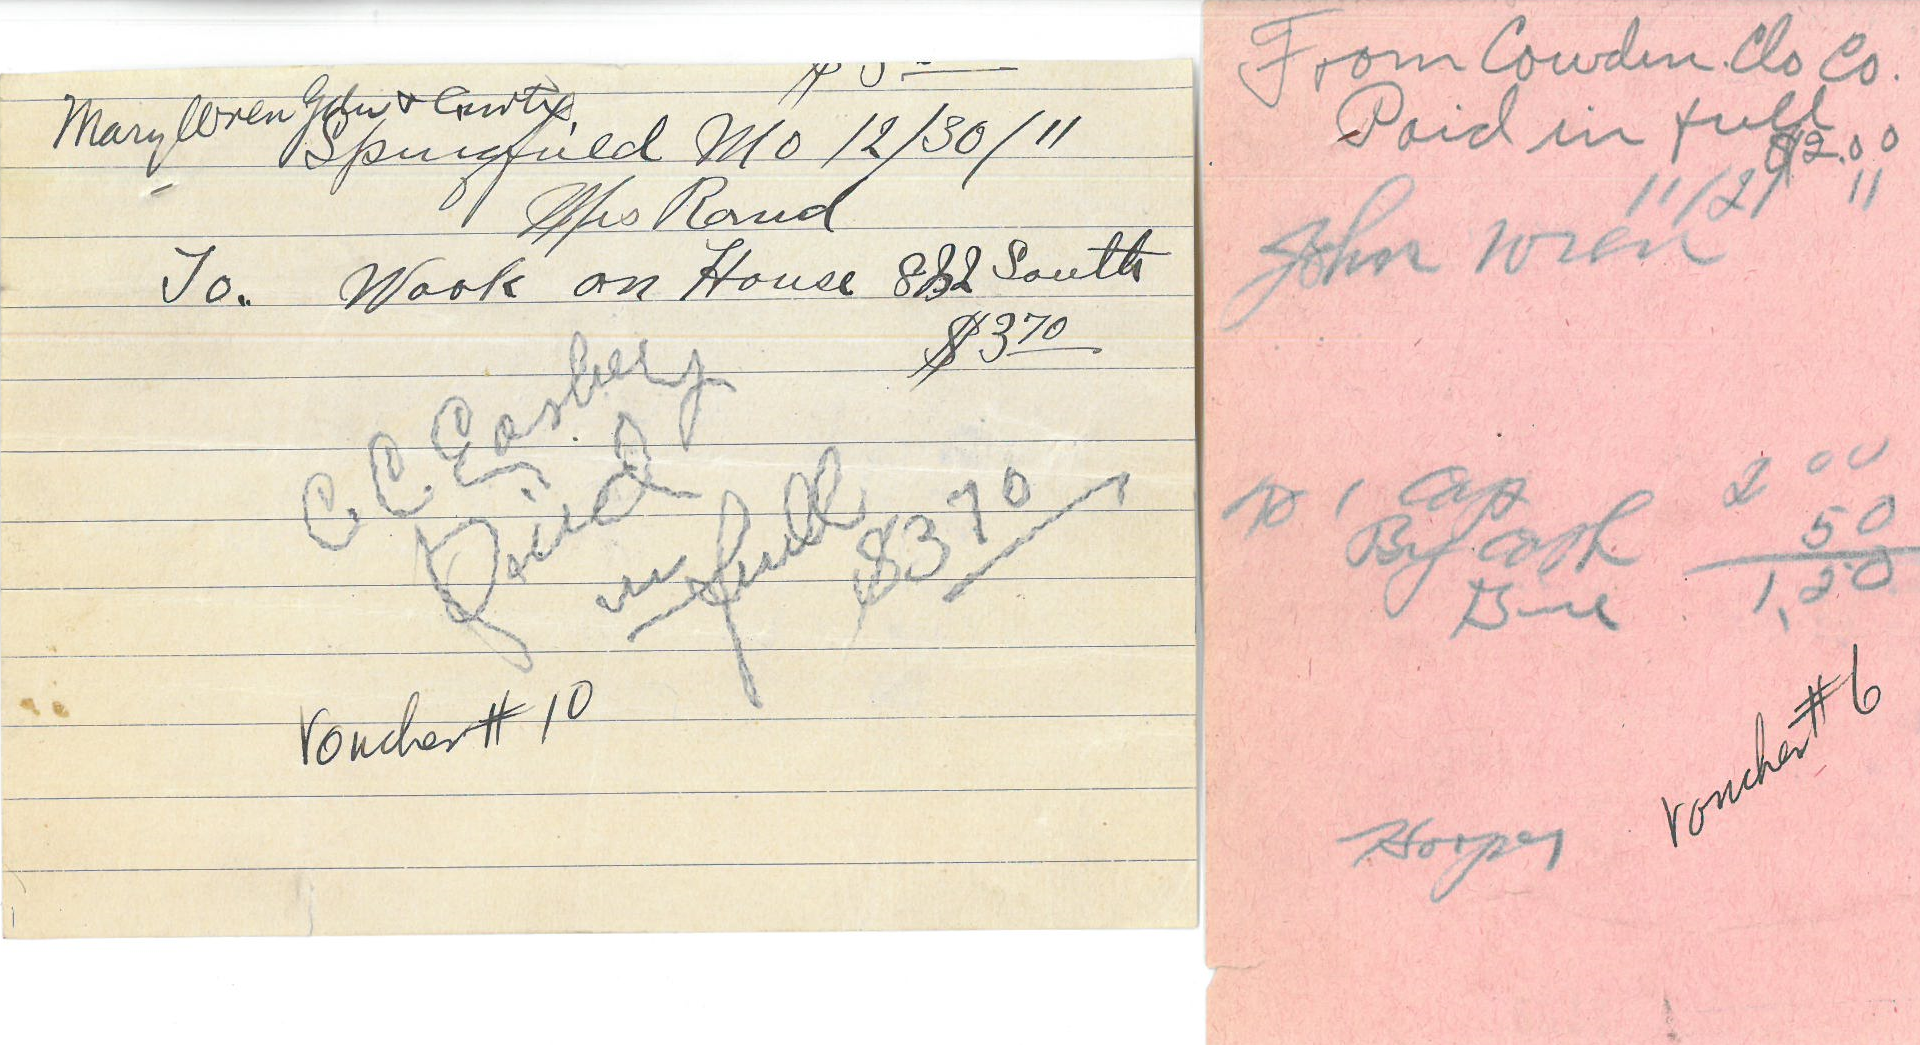 Mary Wren Gdn & Curtis
Springfield Mo 12/30/11
Mrs Rand
To. Wook on House 832 South
$3 70
C. C. Easbery
Paid
in full
$3 70
Voucher # 10
From Cowden Clo Co.
Paid in full
$2.00
11/21 11
John Wren
To 1 Cap 2 00
By cash 50
Due 1,50
Voucher # 6
Harper